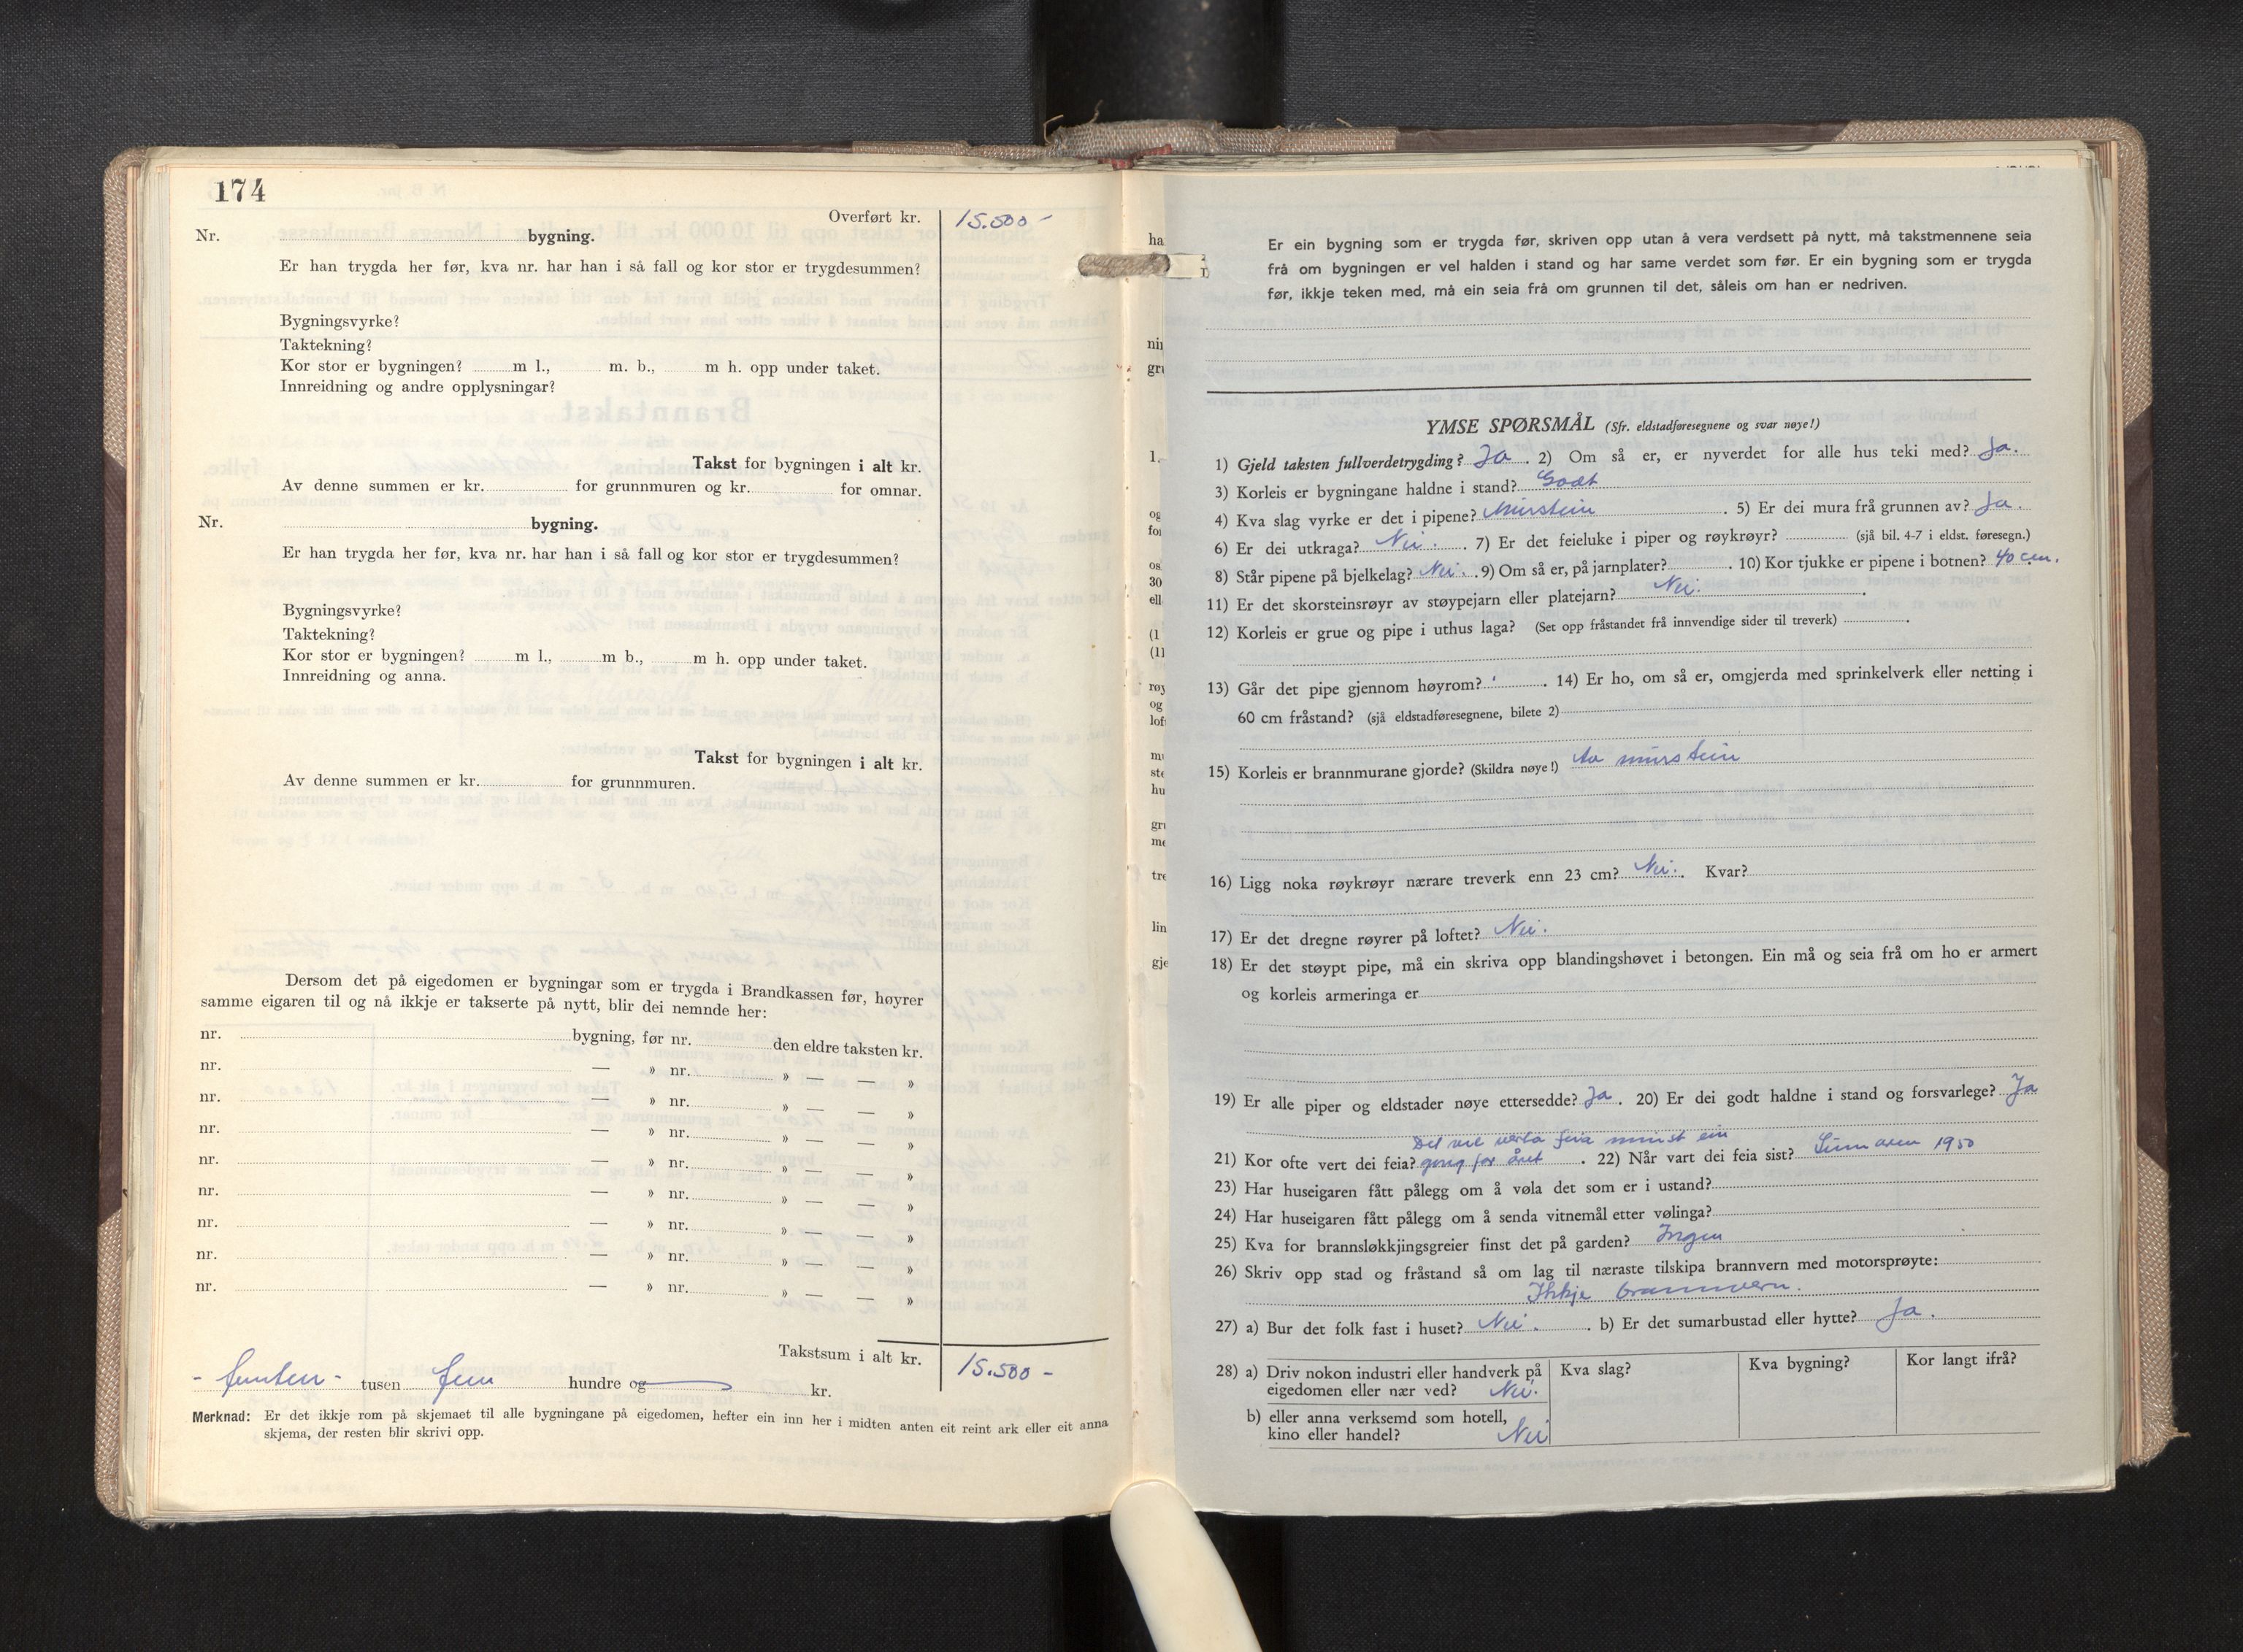 174
Overført kr. 15.500 -
Nr. bygning.
Er han trygda her før, kva nr. har han i så fall og kor stor er trygdesummen?
Bygningsvyrke?
Taktekning?
Kor stor er bygningen? m l., m. b., m h. opp under taket.
Innreidning og andre opplysningar?
Takst for bygningen i alt kr.
Av denne summen er kr. for grunnmuren og kr. for omnar.
Nr. bygning.
Er han trygda her før, kva nr. har han i så fall og kor stor er trygdesummen?
Bygningsvyrke?
Taktekning?
Kor stor er bygningen? m l., m b., m h. opp under taket.
Innreidning og anna.
Takst for bygningen i alt kr.
Av denne summen er kr. for grunnmuren.
Dersom det på eigedomen er bygningar som er trygda i Brandkassen før, høyrer
samme eigaren til og nå ikkje er takserte på nytt, blir dei nemnde her:
nr. bygning, før nr. den eldre taksten kr.
nr. — » nr. » — — »
nr. — » nr. » — — »
nr. — » nr. » — — »
nr. — » nr. » — — »
nr. — » nr. » — — »
nr. — » nr. » — — »
nr. — » nr. » — — »
nr. — » nr. » — — »
Takstsum i alt kr. 15.500 -
- femten - tusen fem hundre og kr.
Merknad: Er det ikkje rom på skjemaet til alle bygningane på eigedomen, hefter ein inn her i midten anten eit reint ark eller eit anna
skjema, der resten blir skrivi opp.
Er ein bygning som er trygda før, skriven opp utan å vera verdsett på nytt, må takstmennene seia
frå om bygningen er vel halden i stand og har same verdet som før. Er ein bygning som er trygda
før, ikkje teken med, må ein seia frå om grunnen til det, såleis om han er nedriven.
YMSE SPØRSMÅL (Sfr. eldstadføresegnene og svar nøye!)
1) Gjeld taksten fullverdetrygding? Ja. 2) Om så er, er nyverdet for alle hus teki med? Ja.
3) Korleis er bygningane haldne i stand? Godt
4) Kva slag vyrke er det i pipene? Murstein. 5) Er dei mura frå grunnen av? Ja.
6) Er dei utkraga? Nei. 7) Er det feieluke i piper og røykrøyr? (sjå bil. 4-7 i eldst. føresegn.)
8) Står pipene på bjelkelag? Nei. 9) Om så er, på jarnplater? . 10) Kor tjukke er pipene i botnen? 40 cm.
11) Er det skorsteinsrøyr av støypejarn eller platejarn? Nei.
12) Korleis er grue og pipe i uthus laga? (Set opp fråstandet frå innvendige sider til treverk)
13) Går det pipe gjennom høyrom? . 14) Er ho, om så er, omgjerda med sprinkelverk eller netting i
60 cm fråstand? (sjå eldstadføresegnene, bilete 2)
15) Korleis er brannmurane gjorde? (Skildra nøye!) Av murstein
16) Ligg noka røykrøyr nærare treverk enn 23 cm? Nei. Kvar?
17) Er det dregne røyrer på loftet? Nei.
18) Er det støypt pipe, må ein skriva opp blandingshøvet i betongen. Ein må og seia frå om ho er armert
og korleis armeringa er
19) Er alle piper og eldstader nøye ettersedde? Ja. 20) Er dei godt haldne i stand og forsvarlege? Ja
Det vil verta feia minst ein
21) Kor ofte vert dei feia? gong for året. 22) Når vart dei feia sist? Sumaren 1950
23) Har huseigaren fått pålegg om å vøla det som er i ustand?
24) Har huseigaren fått pålegg om å senda vitnemål etter vølinga?
25) Kva for brannsløkkjingsgreier finst det på garden? Ingen
26) Skriv opp stad og fråstand så om lag til næraste tilskipa brannvern med motorsprøyte:
Ikkje brannvern.
27) a) Bur det folk fast i huset? Nei. b) Er det sumarbustad eller hytte? Ja.
28) a) Driv nokon industri eller handverk på Kva slag? Kva bygning? Kor langt ifrå?
eigedomen eller nær ved? Nei.
b) eller anna verksemd som hotell,
kino eller handel? Nei